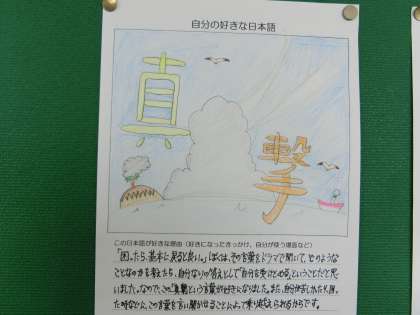 自分の好きな日本語
真
撃
この日本語が好きな理由（好きになったきっかけ、自分が使う場面など）
「困ったら、基本に戻ると良い。」ぼくは、その言葉をドラマで聞いて、どのような
ことなのかを考えたら、自分なりの答えとして「自分を受け止める」ということだと思
いました。なので、この「真撃」という言葉が好きになりました。また、自分が苦しかったり、困っ
た時などに、この言葉を言い聞かせることによって乗り越えられるからです。